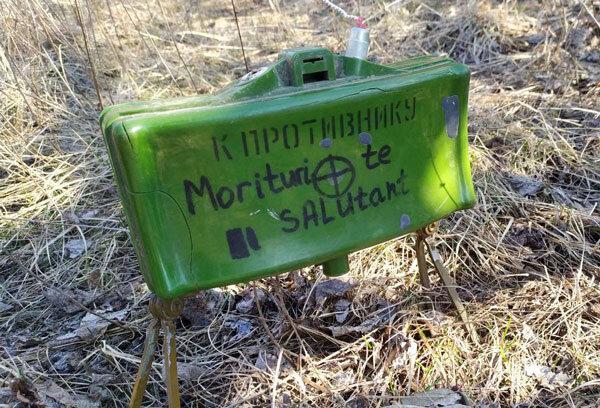 К ПРОТИВНИКУ
Morituri te
SALUtant